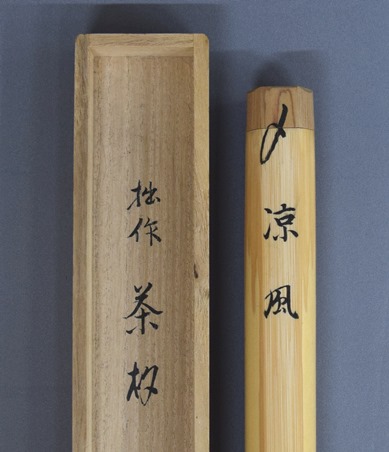 拙作
茶杓
〆
凉風